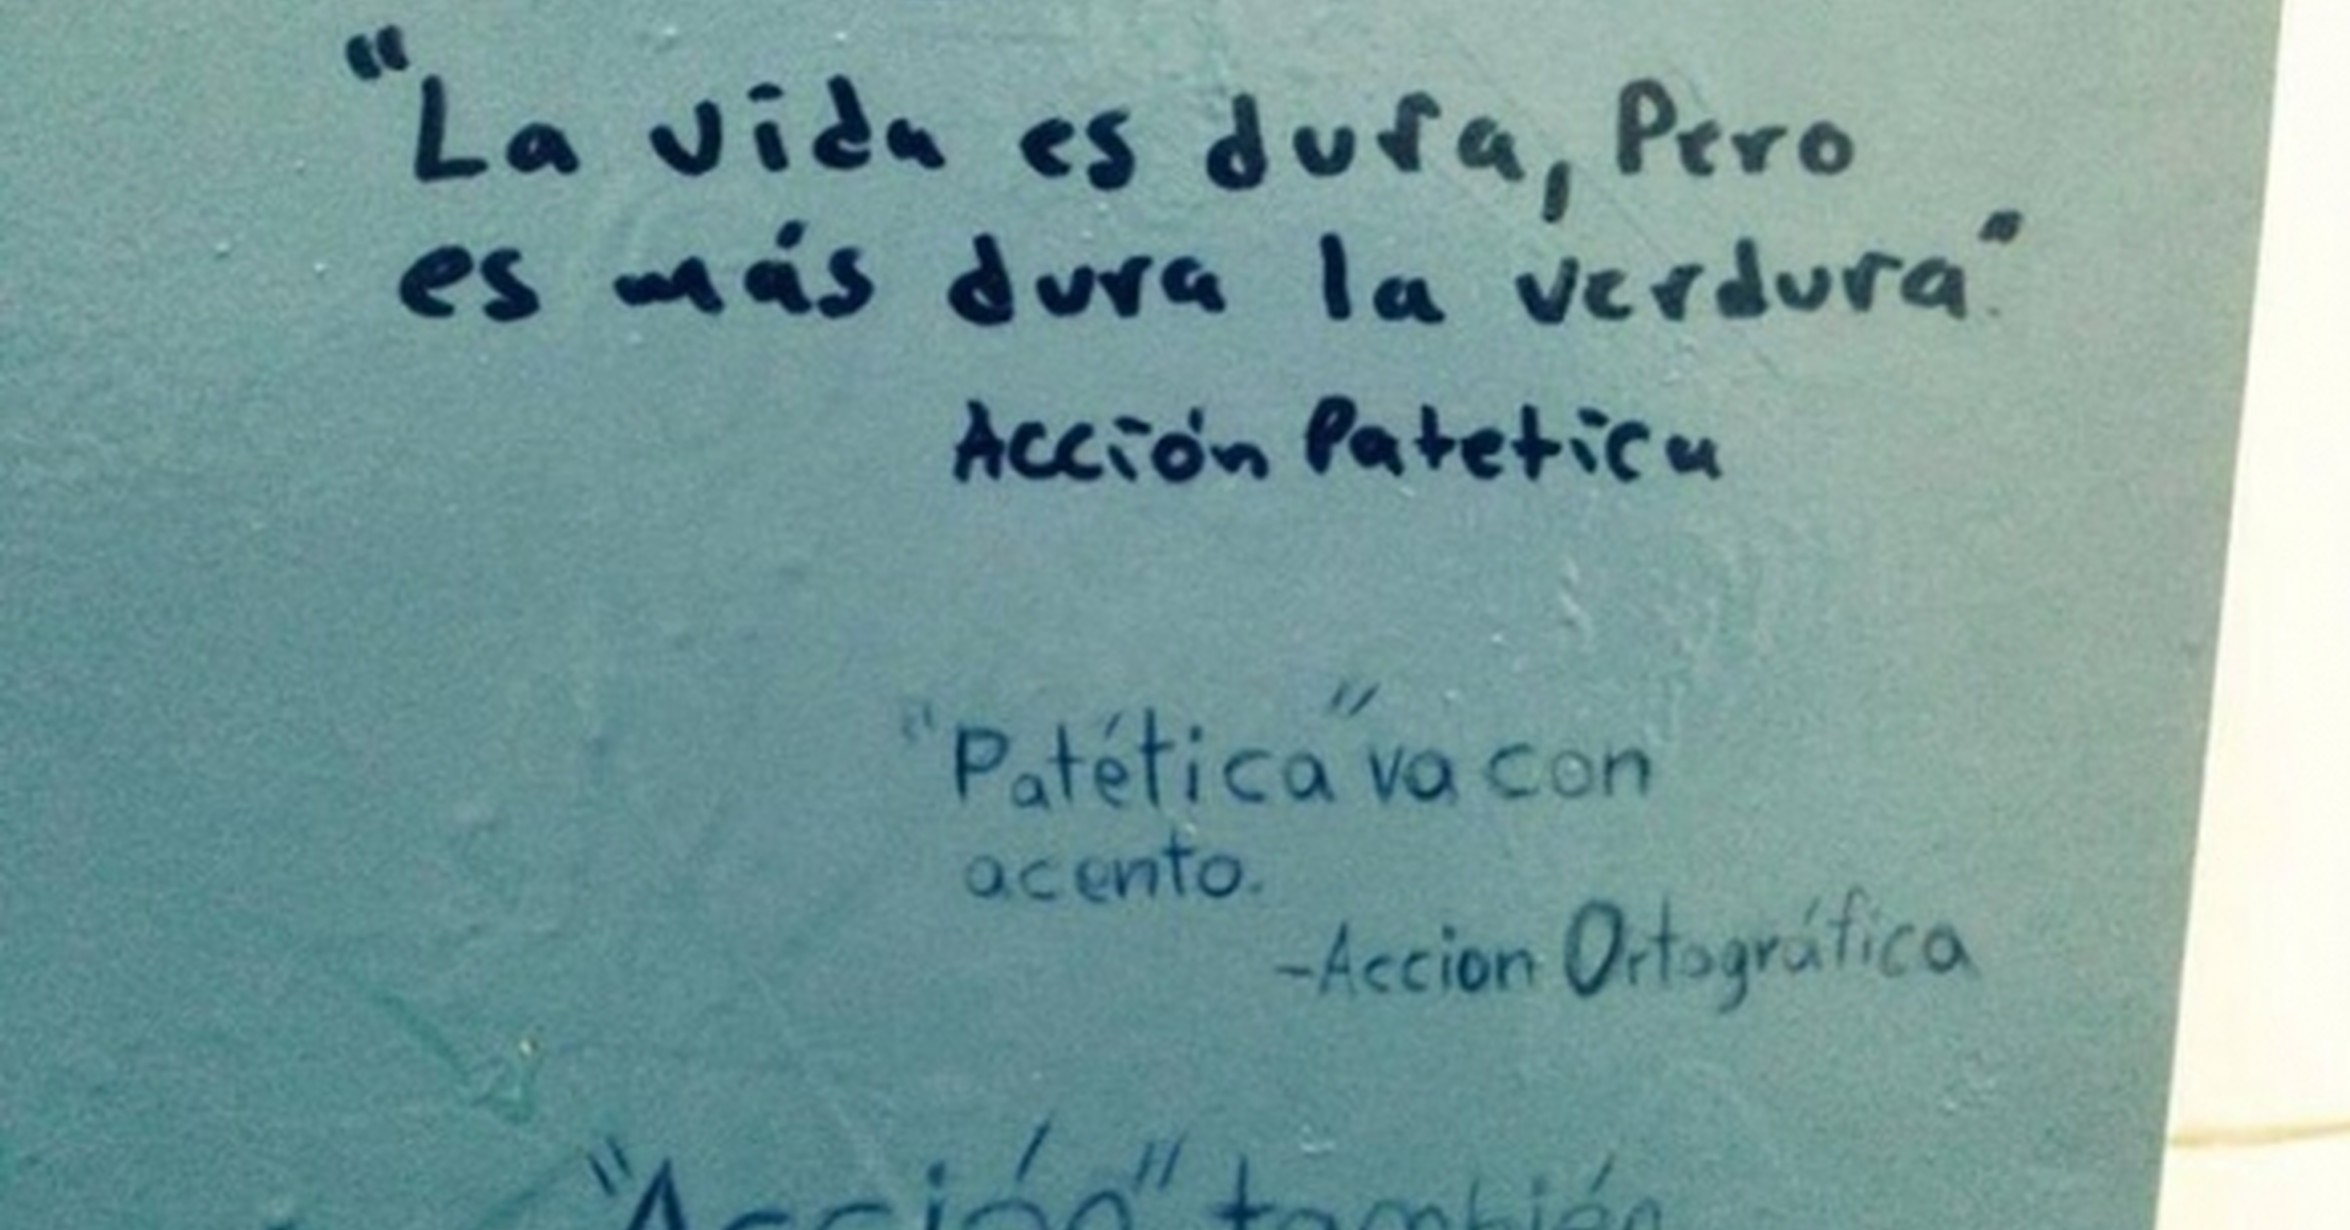 "La vida es dura, Pero
es más dura la verdura".
Acción Patetica
"Patética" va con
acento.
-Accion Ortográfica
"Acción" también